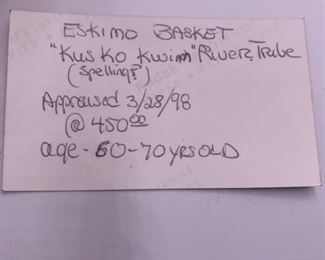 ESKIMO BASKET
"Kus Ko Kwim" River, Tribe
(spelling?)
Appraised 3/28/98
@ 450.00
age - 60-70 yrs OLD